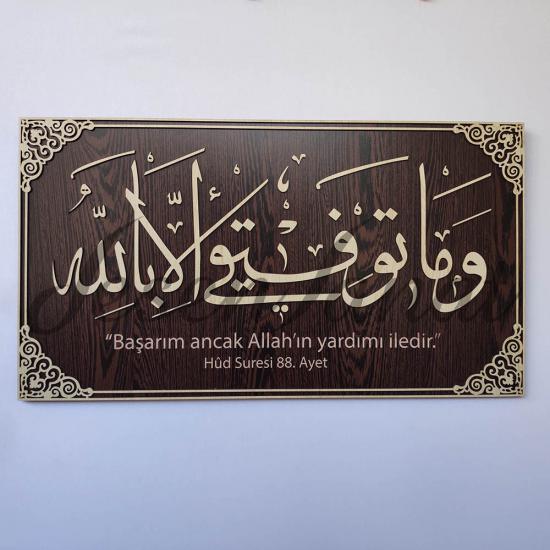 وَمَا تَوْفِيقِي إِلَّا بِاللَّهِ
“Başarım ancak Allah’ın yardımı iledir.”
Hûd Suresi 88. Ayet